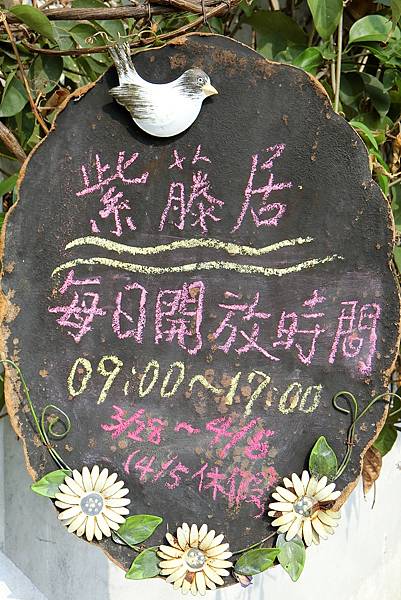 紫藤居
每日開放時間
09:00~17:00
3/28~4/8
(4/5休假)